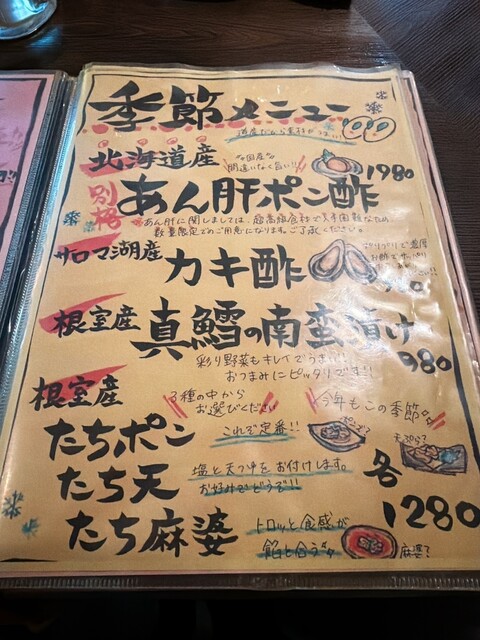 季節メニュー
北海道産
間違いなく旨い!!
1980
別格
あん肝ポン酢
あん肝に関しましては、超高級食材で入手困難なため
数量限定でのご用意になります。ご了承ください。
サロマ湖産
カキ酢
根室産
真鱈の南蛮漬け
980
彩り野菜もキレイでうまい!!
おつまみにピッタリです!!
根室産
3種の中から
お選びください
今年もこの季節
たちポン
これぞ定番!!
たち天
塩と天つゆをお付けします。
お好みでどうぞ!!
各
1280
たち麻婆
トロッと食感が
餡と合う